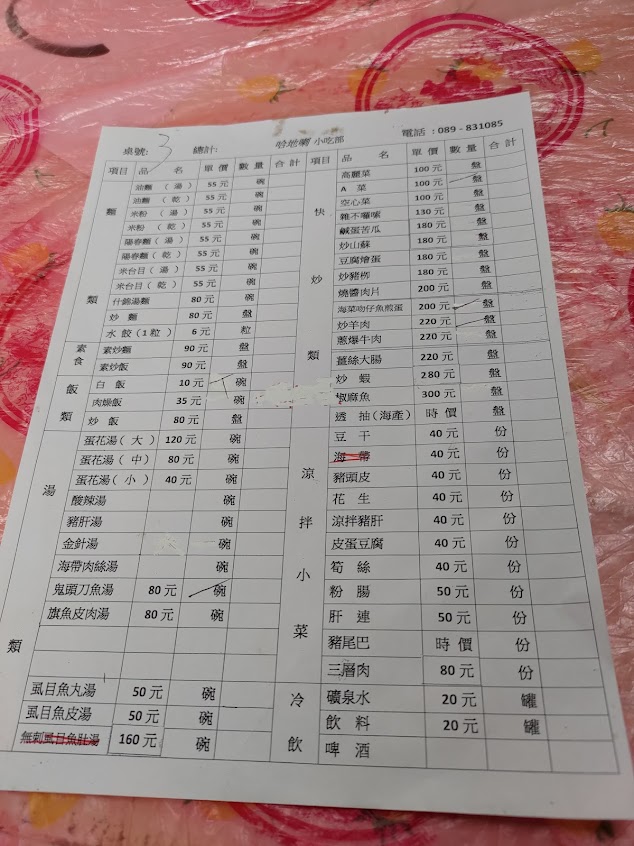 桌號: 3 總計: 小吃部 電話：089-831085
項目 品 名 單價 數量 合計
麵類
油麵（湯） 55元 碗
油麵（乾） 55元 碗
米粉（湯） 55元 碗
米粉（乾） 55元 碗
陽春麵（湯） 55元 碗
陽春麵（乾） 55元 碗
米台目（湯） 55元 碗
米台目（乾） 55元 碗
什錦湯麵 80元 碗
炒 麵 80元 盤
水 餃(1粒) 6元 粒
素食
素炒麵 90元 盤
素炒飯 90元 盤
飯類
白 飯 10元 碗
肉燥飯 35元 碗
炒 飯 80元 盤
湯類
蛋花湯(大) 120元 碗
蛋花湯(中) 80元 碗
蛋花湯(小) 40元 碗
酸辣湯 碗
豬肝湯 碗
金針湯 碗
海帶肉絲湯 碗
鬼頭刀魚湯 80元 碗
旗魚皮肉湯 80元 碗
虱目魚丸湯 50元 碗
虱目魚皮湯 50元 碗
無刺虱目魚肚湯 160元 碗
項目 品 名 單價 數量 合計
快炒類
高麗菜 100元 盤
A 菜 100元 盤
空心菜 100元 盤
雜不囉嗦 130元 盤
鹹蛋苦瓜 180元 盤
炒山蘇 180元 盤
豆腐燴蛋 180元 盤
炒豬 180元 盤
燒醬肉片 200元 盤
海菜吻仔魚煎蛋 200元 盤
炒羊肉 220元 盤
蔥爆牛肉 220元 盤
薑絲大腸 220元 盤
炒 蝦 280元 盤
椒麻魚 300元 盤
透 抽(海產) 時價 盤
涼拌小菜
豆 干 40元 份
海 帶 40元 份
豬頭皮 40元 份
花 生 40元 份
涼拌豬肝 40元 份
皮蛋豆腐 40元 份
筍 絲 40元 份
粉 腸 50元 份
肝 連 50元 份
豬尾巴 時價 份
三層肉 80元 份
冷飲
礦泉水 20元 罐
飲 料 20元 罐
啤 酒